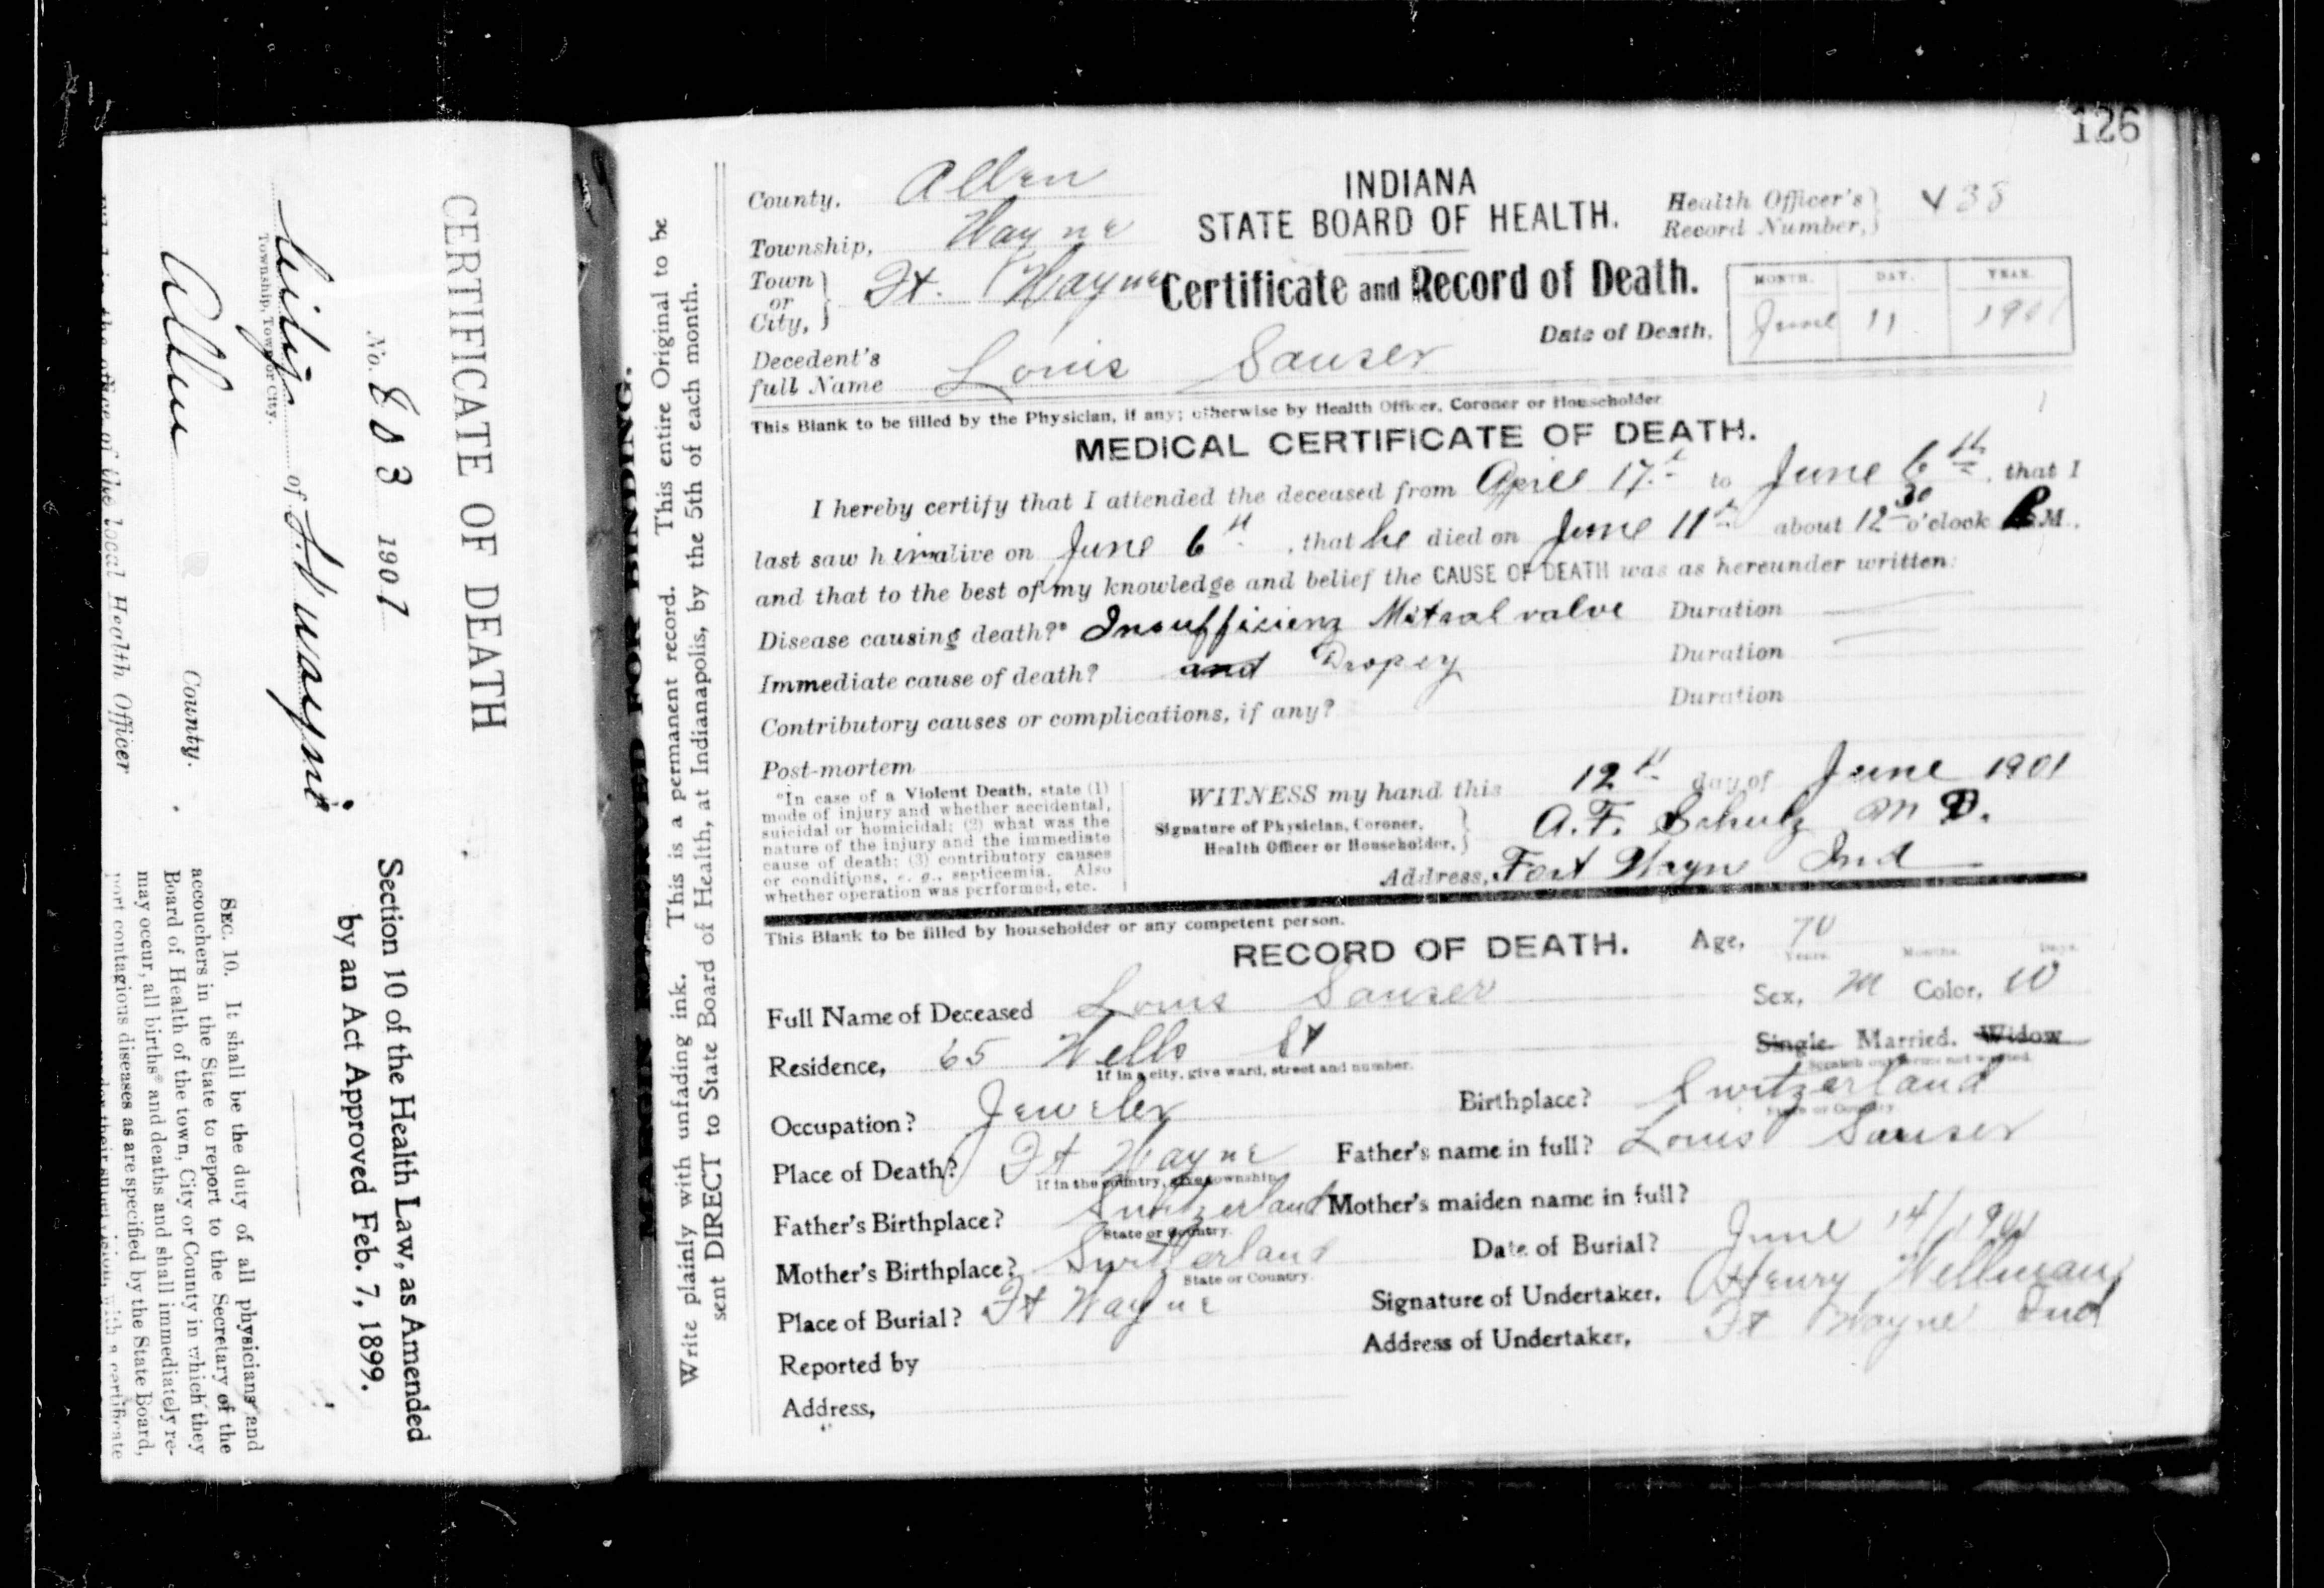 CERTIFICATE OF DEATH
No. 803 1901
City of Ft Wayne
Township, Town or City.
Allen County.
Section 10 of the Health Law, as Amended
by an Act Approved Feb. 7, 1899.
SEC. 10. It shall be the duty of all physicians and
accouchers in the State to report to the Secretary of the
Board of Health of the town, City or County in which they
may occur, all births and deaths and shall immediately re-
port contagious diseases as are specified by the State Board,
with a certificate
office of the local Health Officer
MARGIN RESERVED FOR BINDING.
Write plainly with unfading ink. This is a permanent record. This entire Original to be
sent DIRECT to State Board of Health, at Indianapolis, by the 5th of each month.
126
County, Allen
Township, Wayne
Town or City, Ft. Wayne
INDIANA
STATE BOARD OF HEALTH.
Certificate and Record of Death.
Health Officer's Record Number, 438
Date of Death.
MONTH. DAY. YEAR.
June 11 1901
Decedent's full Name Louis Sauser
This Blank to be filled by the Physician, if any; otherwise by Health Officer, Coroner or Householder
MEDICAL CERTIFICATE OF DEATH.
I hereby certify that I attended the deceased from April 17th to June 6th, that I
last saw him alive on June 6th, that he died on June 11th about 12 30 o'clock P.M.,
and that to the best of my knowledge and belief the CAUSE OF DEATH was as hereunder written:
Disease causing death?* Insufficienz Mitral valve Duration
Immediate cause of death? and Dropsy Duration
Contributory causes or complications, if any? Duration
Post-mortem
*In case of a Violent Death, state (1)
mode of injury and whether accidental,
suicidal or homicidal; (2) what was the
nature of the injury and the immediate
cause of death; (3) contributory causes
or conditions, e. g., septicemia. Also
whether operation was performed, etc.
WITNESS my hand this 12th day of June 1901
Signature of Physician, Coroner, Health Officer or Householder, A.F. Schulz M D.
Address, Fort Wayn Ind
This Blank to be filled by householder or any competent person.
RECORD OF DEATH.
Age, 70
Years. Months. Days.
Full Name of Deceased Louis Sauser
Sex, M Color, W
Residence, 65 Wells St
If in a city, give ward, street and number.
Single. Married. Widow
Scratch out terms not wanted.
Occupation? Jeweler
Birthplace? Switzerland
State or Country.
Place of Death? Ft Wayne
If in the country, give township.
Father's name in full? Louis Sauser
Father's Birthplace? Switzerland
State or Country.
Mother's maiden name in full?
Mother's Birthplace? Switzerland
State or Country.
Date of Burial? June 14/1901
Place of Burial? Ft Wayne
Signature of Undertaker, Henry Wellman
Address of Undertaker, Ft Wayne Ind
Reported by
Address,